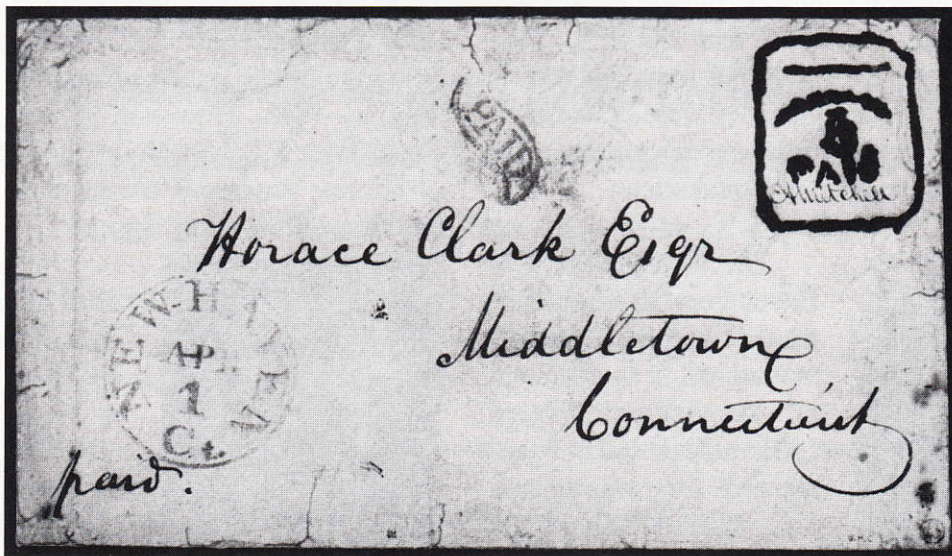 PAID
PAID
E. A. Mitchell
Horace Clark Esqr
Middletown
Connecticut
NEW-HAVEN
AP.
1
Ct.
paid.